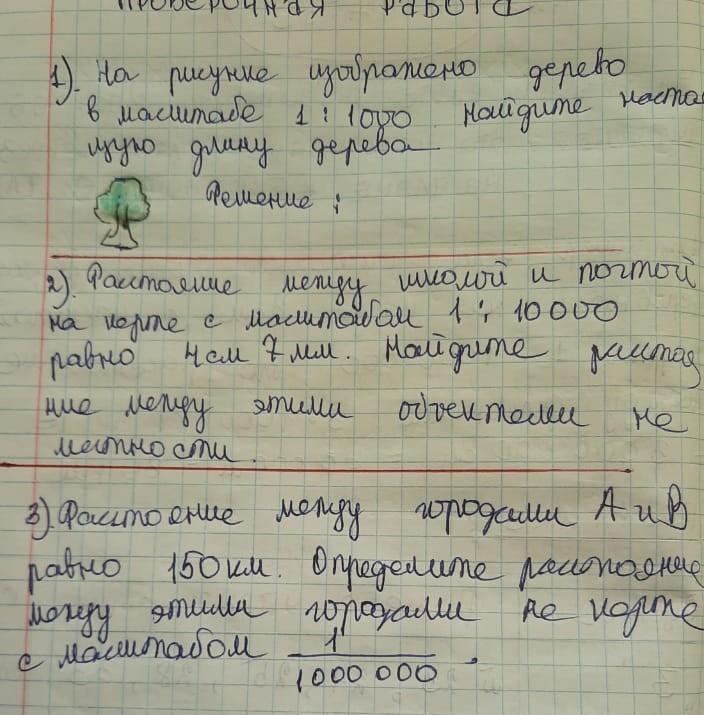 Проверочная работа
1). На рисунке изображено дерево
в масштабе 1 : 1000 Найдите настоя
щую длину дерева
Решение :
2). Расстояние между школой и почтой
на карте с масштабом 1 : 10000
равно 4см 7мм. Найдите расстоя
ние между этими объектами на
местности.
3). Расстояние между городами А и В
равно 150км. Определите расстояние
между этими городами на карте
с масштабом 1/1000 000 .